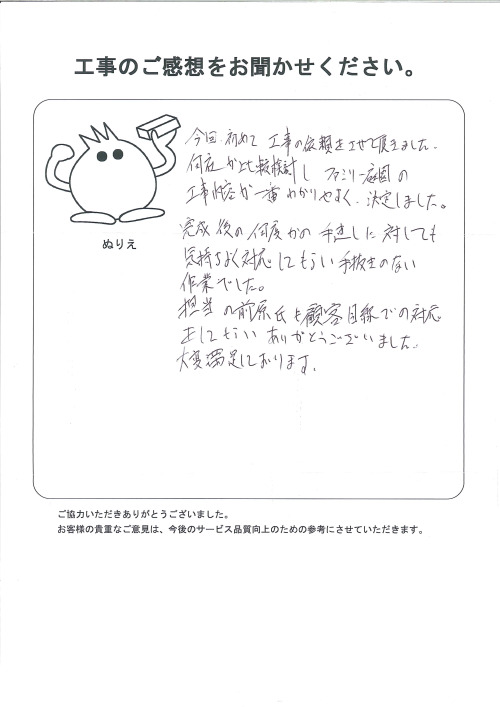 工事のご感想をお聞かせください。
今回初めて工事の依頼をさせて頂きました。
何店か比較検討し ファミリー庭園の
工事内容が一番わかりやすく、決定しました。
完成後の何度かの手直しに対しても
気持ちよく対応してもらい手抜きのない
作業でした。
担当の前原氏も顧客目線での対応
をしてもらい ありがとうございました。
大変満足しております。
ぬりえ
ご協力いただきありがとうございました。
お客様の貴重なご意見は、今後のサービス品質向上のための参考にさせていただきます。